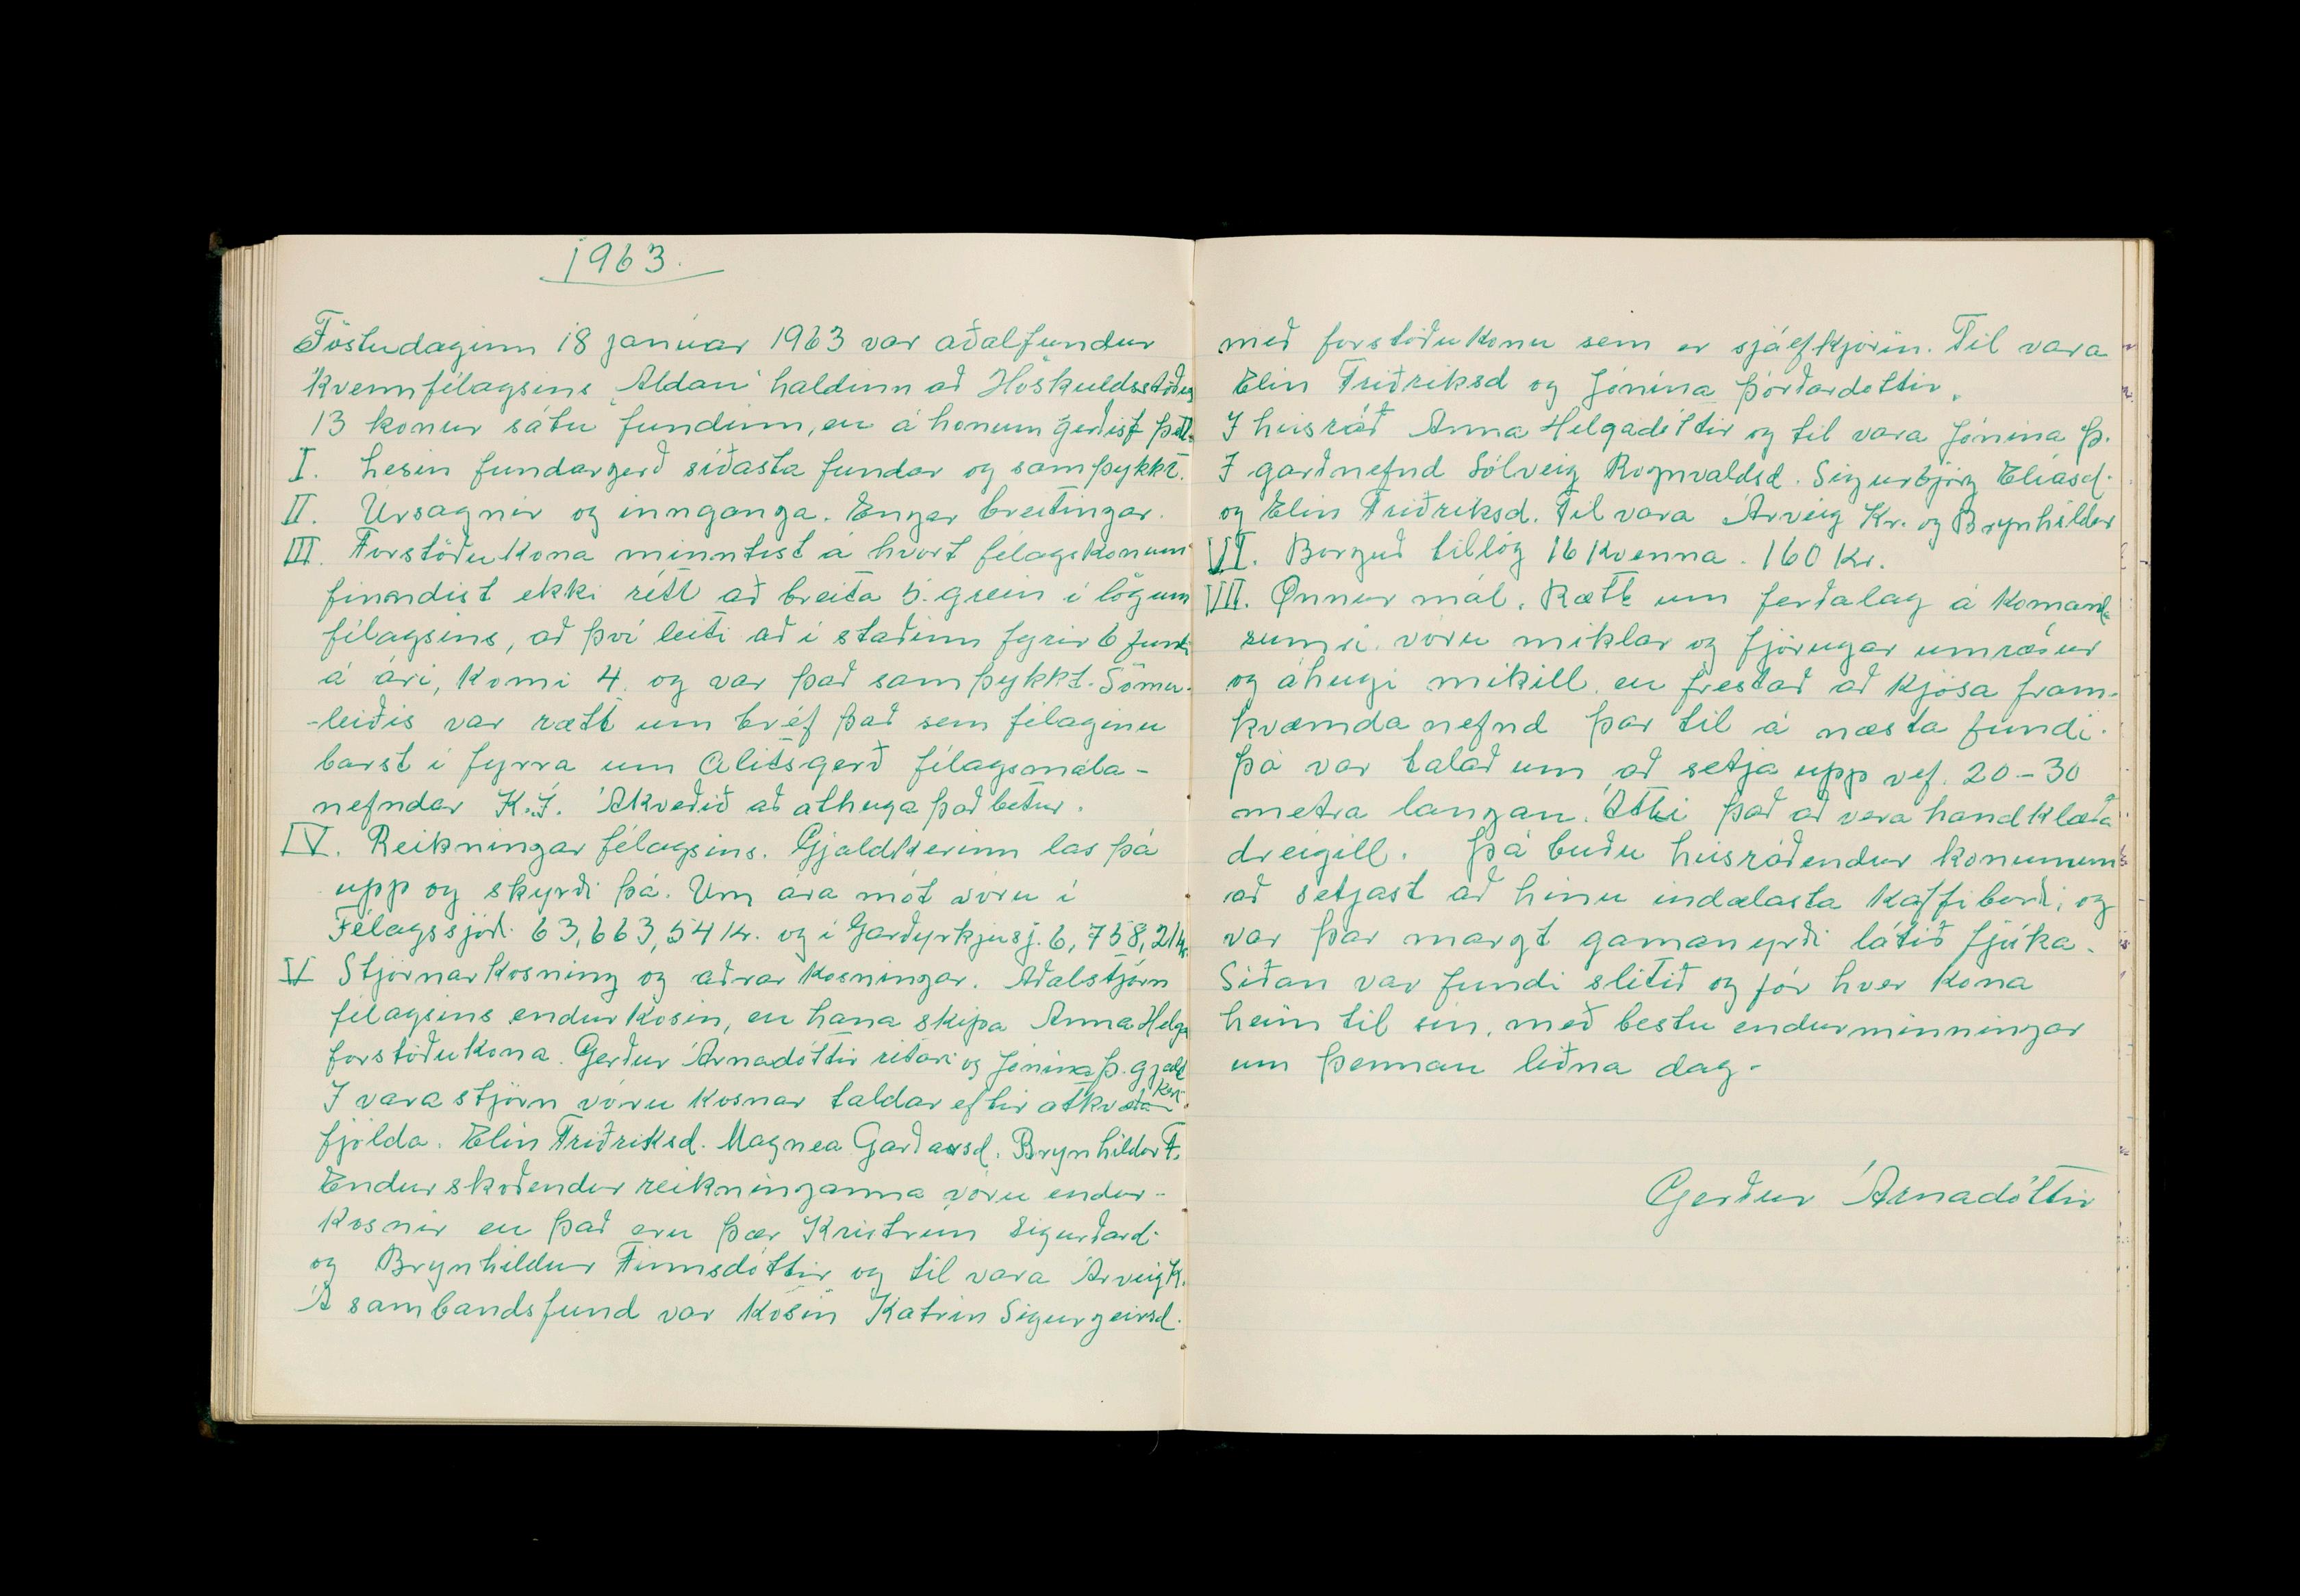 1963.
Föstudaginn 18 janúar 1963 var aðalfundur
kvennfélagsins „Aldan" haldinn að Höskuldsstöðum
13 konur sátu fundinn, en á honum gerðist þetta.
I. Lesin fundargerð síðasta fundar og samþykkt.
II. Úrsagnir og innganga. Engar breitingar.
III. Forstöðukona minntist á hvort félagskonum
finndist ekki rétt að breita 5. grein í lögum
félagsins, að því leiti að í staðinn fyrir 6 fundi
á ári, komi 4. og var það samþykkt. Sömu-
-leiðis var rætt um bréf það sem félaginu
barst í fyrra um álitsgerð félagsmála-
nefndar K.Í. Ákveðið að athuga það betur.
IV. Reikningar félagsins. Gjaldkerinn las þá
upp og skyrði þá. Um ára mót vóru í
Félagssjóð. 63,663,54 kr. og í Garðyrkjusj. 6,758,21 kr.
V Stjórnarkosning og aðrar kosningar. Aðalstjórn
félagsins endurkosin, en hana skipa Anna Helga
forstöðukona. Gerður Árnadóttir ritari og Jónína Þ. gjald
keri
I vara stjórn vóru kosnar taldar eftir atkvæða
fjölda. Elin Friðriksd. Magnea Garðarsd. Brynhildur F.
Endurskoðendur reikninganna vóru endur-
kosnir en það eru þær Kristrún Sigurðard.
og Brynhildur Finnsdóttir og til vara Árveig K.
Á sambandsfund var kosin Katrín Sigurgeirsd.
með forstöðukonu sem er sjálfkjörin. Til vara
Elin Friðriksd og Jónína Þórðardottir.
I húsráð Anna Helgadóttir og til vara Jónína Þ.
I garðnefnd Sólveig Rognvaldsd. Sigurbjörg Elíasd.
og Elin Friðriksd. Til vara Árveig Kr. og Brynhildur
VI. Borguð tillög 16 kvenna. 160 Kr.
VII. Önnur mál. Rætt um ferðalag á komandi
sumri. vóru miklar og fjörugar umræður
og áhugi mikill. en frestað að kjósa fram-
kvæmda nefnd þar til á næsta fundi.
Þá var talað um að setja upp vef. 20-30
metra langan. Átti það að vera handklæða
dreigill. Þá buðu húsráðendur konunum
að setjast að hinu indælasta kaffiborði og
var þar margt gamanyrði látið fjúka.
Síðan var fundi slitið og fór hver kona
heim til sín, með bestu endurminningar
um þennan liðna dag.
Gerður Árnadóttir